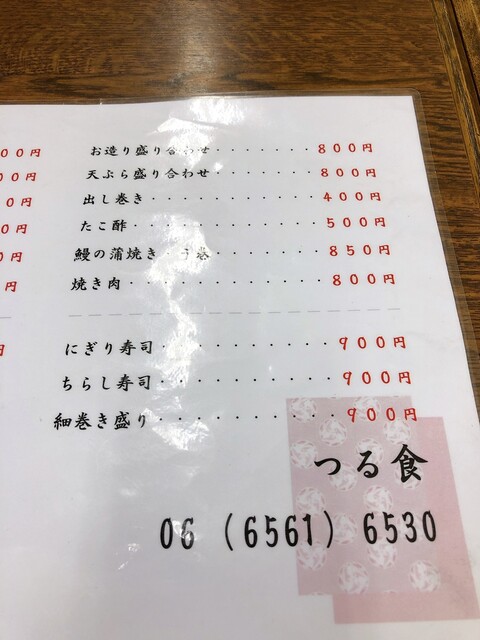 ００円
００円
０円
０円
０円
円
円
お造り盛り合わせ・・・・・・・８００円
天ぷら盛り合わせ・・・・・・・８００円
出し巻き・・・・・・・・・・・・４００円
たこ酢・・・・・・・・・・・・・５００円
鰻の蒲焼き・う巻・・・・・・・８５０円
焼き肉・・・・・・・・・・・・・８００円
にぎり寿司・・・・・・・・・・・９００円
ちらし寿司・・・・・・・・・・・９００円
細巻き盛り・・・・・・・・・・・９００円
つる食
06 (6561) 6530